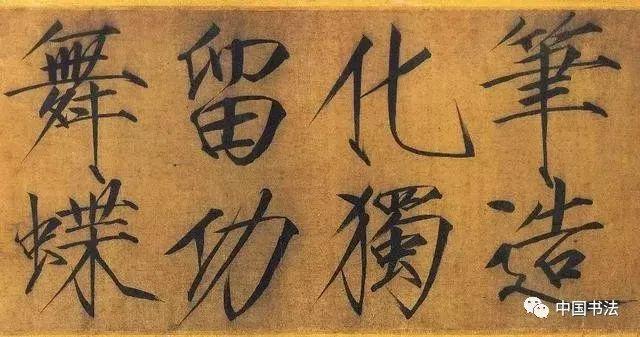 筆造
化獨
留功
舞蝶
中国书法